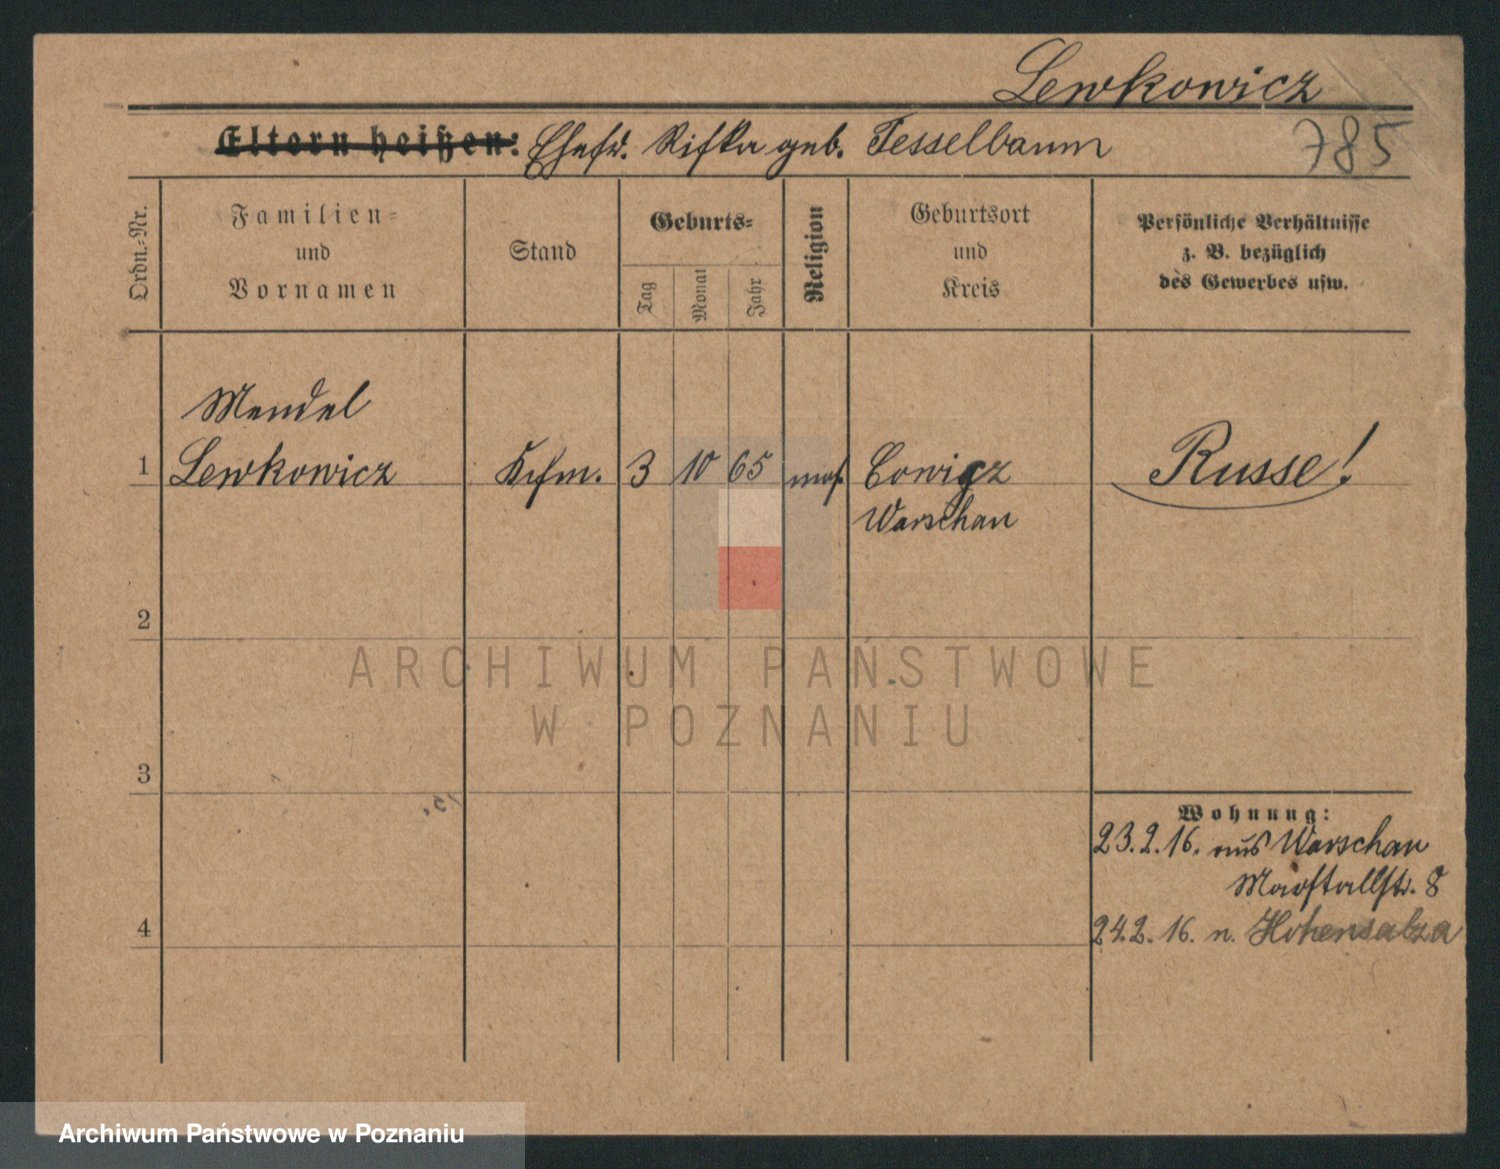 Lewkowicz
Eltern heißen: Ehefr. Rifka geb. Tesselbaum
785
Ordn.-Nr.
Familien-
und
Vornamen
Stand
Geburts-
Tag
Monat
Jahr
Religion
Geburtsort
und
Kreis
Persönliche Verhältnisse
z. B. bezüglich
des Gewerbes usw.
Mendel
1 Lewkowicz Kfm. 3 10 65 mos. Lowicz Russe!
Warschau
2
ARCHIWUM PAŃSTWOWE
W POZNANIU
3
Wohnung:
23.2.16. aus Warschau
Marstallstr. 8
4 24.2.16. n. Hohensalza
Archiwum Państwowe w Poznaniu